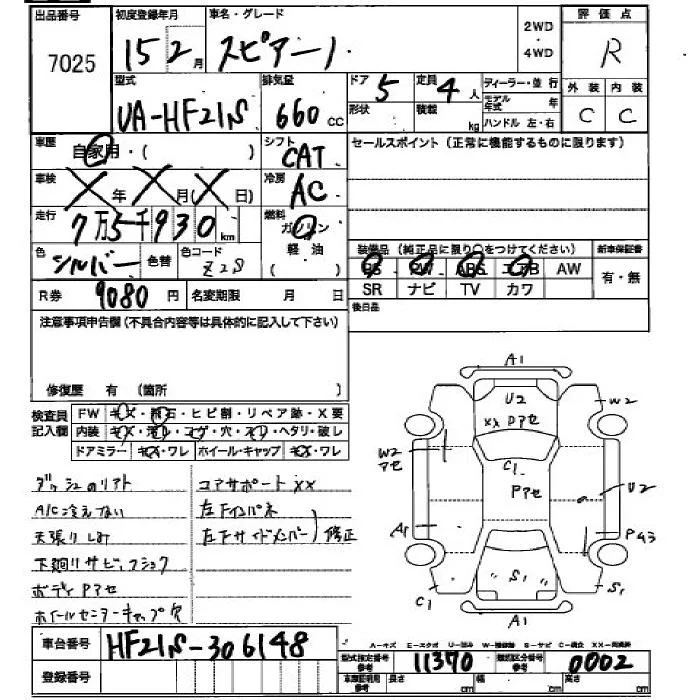 出品番号 初度登録年月 車名・グレード 2WD・4WD 評価点
7025 15 2月 スピアーノ R
型式 排気量 ドア 5 定員 4人 ディーラー・並行 外装 内装
UA-HF21S 660cc 形状 積載 kg モデル年式 年 ハンドル 左・右 C C
車歴 自家用・( ) シフト CAT セールスポイント(正常に機能するものに限ります)
車検 X年X月(X日) 冷房 AC
走行 7万5千930km 燃料 ガソリン 軽油
色 シルバー 色替 色コード Z2S 装備品(純正品に限り○をつけてください) 新車保証書
PS PW ABS エアB AW 有・無
R券 9080円 名変期限 月 日 SR ナビ TV カワ
注意事項申告欄(不具合内容等は具体的に記入して下さい) 後日品
修復歴 有 (箇所 )
検査員記入欄 FW キズ・飛石・ヒビ割・リペア跡・X要
内装 キズ・汚レ・コゲ・穴・スリ・ヘタリ・破レ
ドアミラー キズ・ワレ ホイール・キャップ キズ・ワレ
A1
U2 W2
XX Pアセ
W2 アセ C1 Pアセ U2
A1 P
C1 S1 S1
A1
コアサポートXX
A/C冷えない 左Fインパネ
天張りしみ 左Fサイドメンバー 修正
下廻りサビ、フショク
ボディPアセ
ホイールセンターキャップ欠
車台番号 HF21S-306148
A-キズ E-エクボ U-凹み W-補修跡 S-サビ C-腐食 XX-交換済
型式指定番号 参考 11370 類別区分番号 参考 0002
登録番号 車庫証明用参考 長さ cm 幅 cm 高さ cm